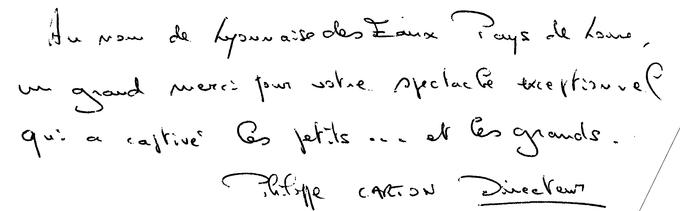 Au nom de Lyonnaise des Eaux Pays de Loire,
un grand merci pour votre spectacle exceptionnel
qui a captivé les petits ... et les grands.
Philippe CARTON Directeur